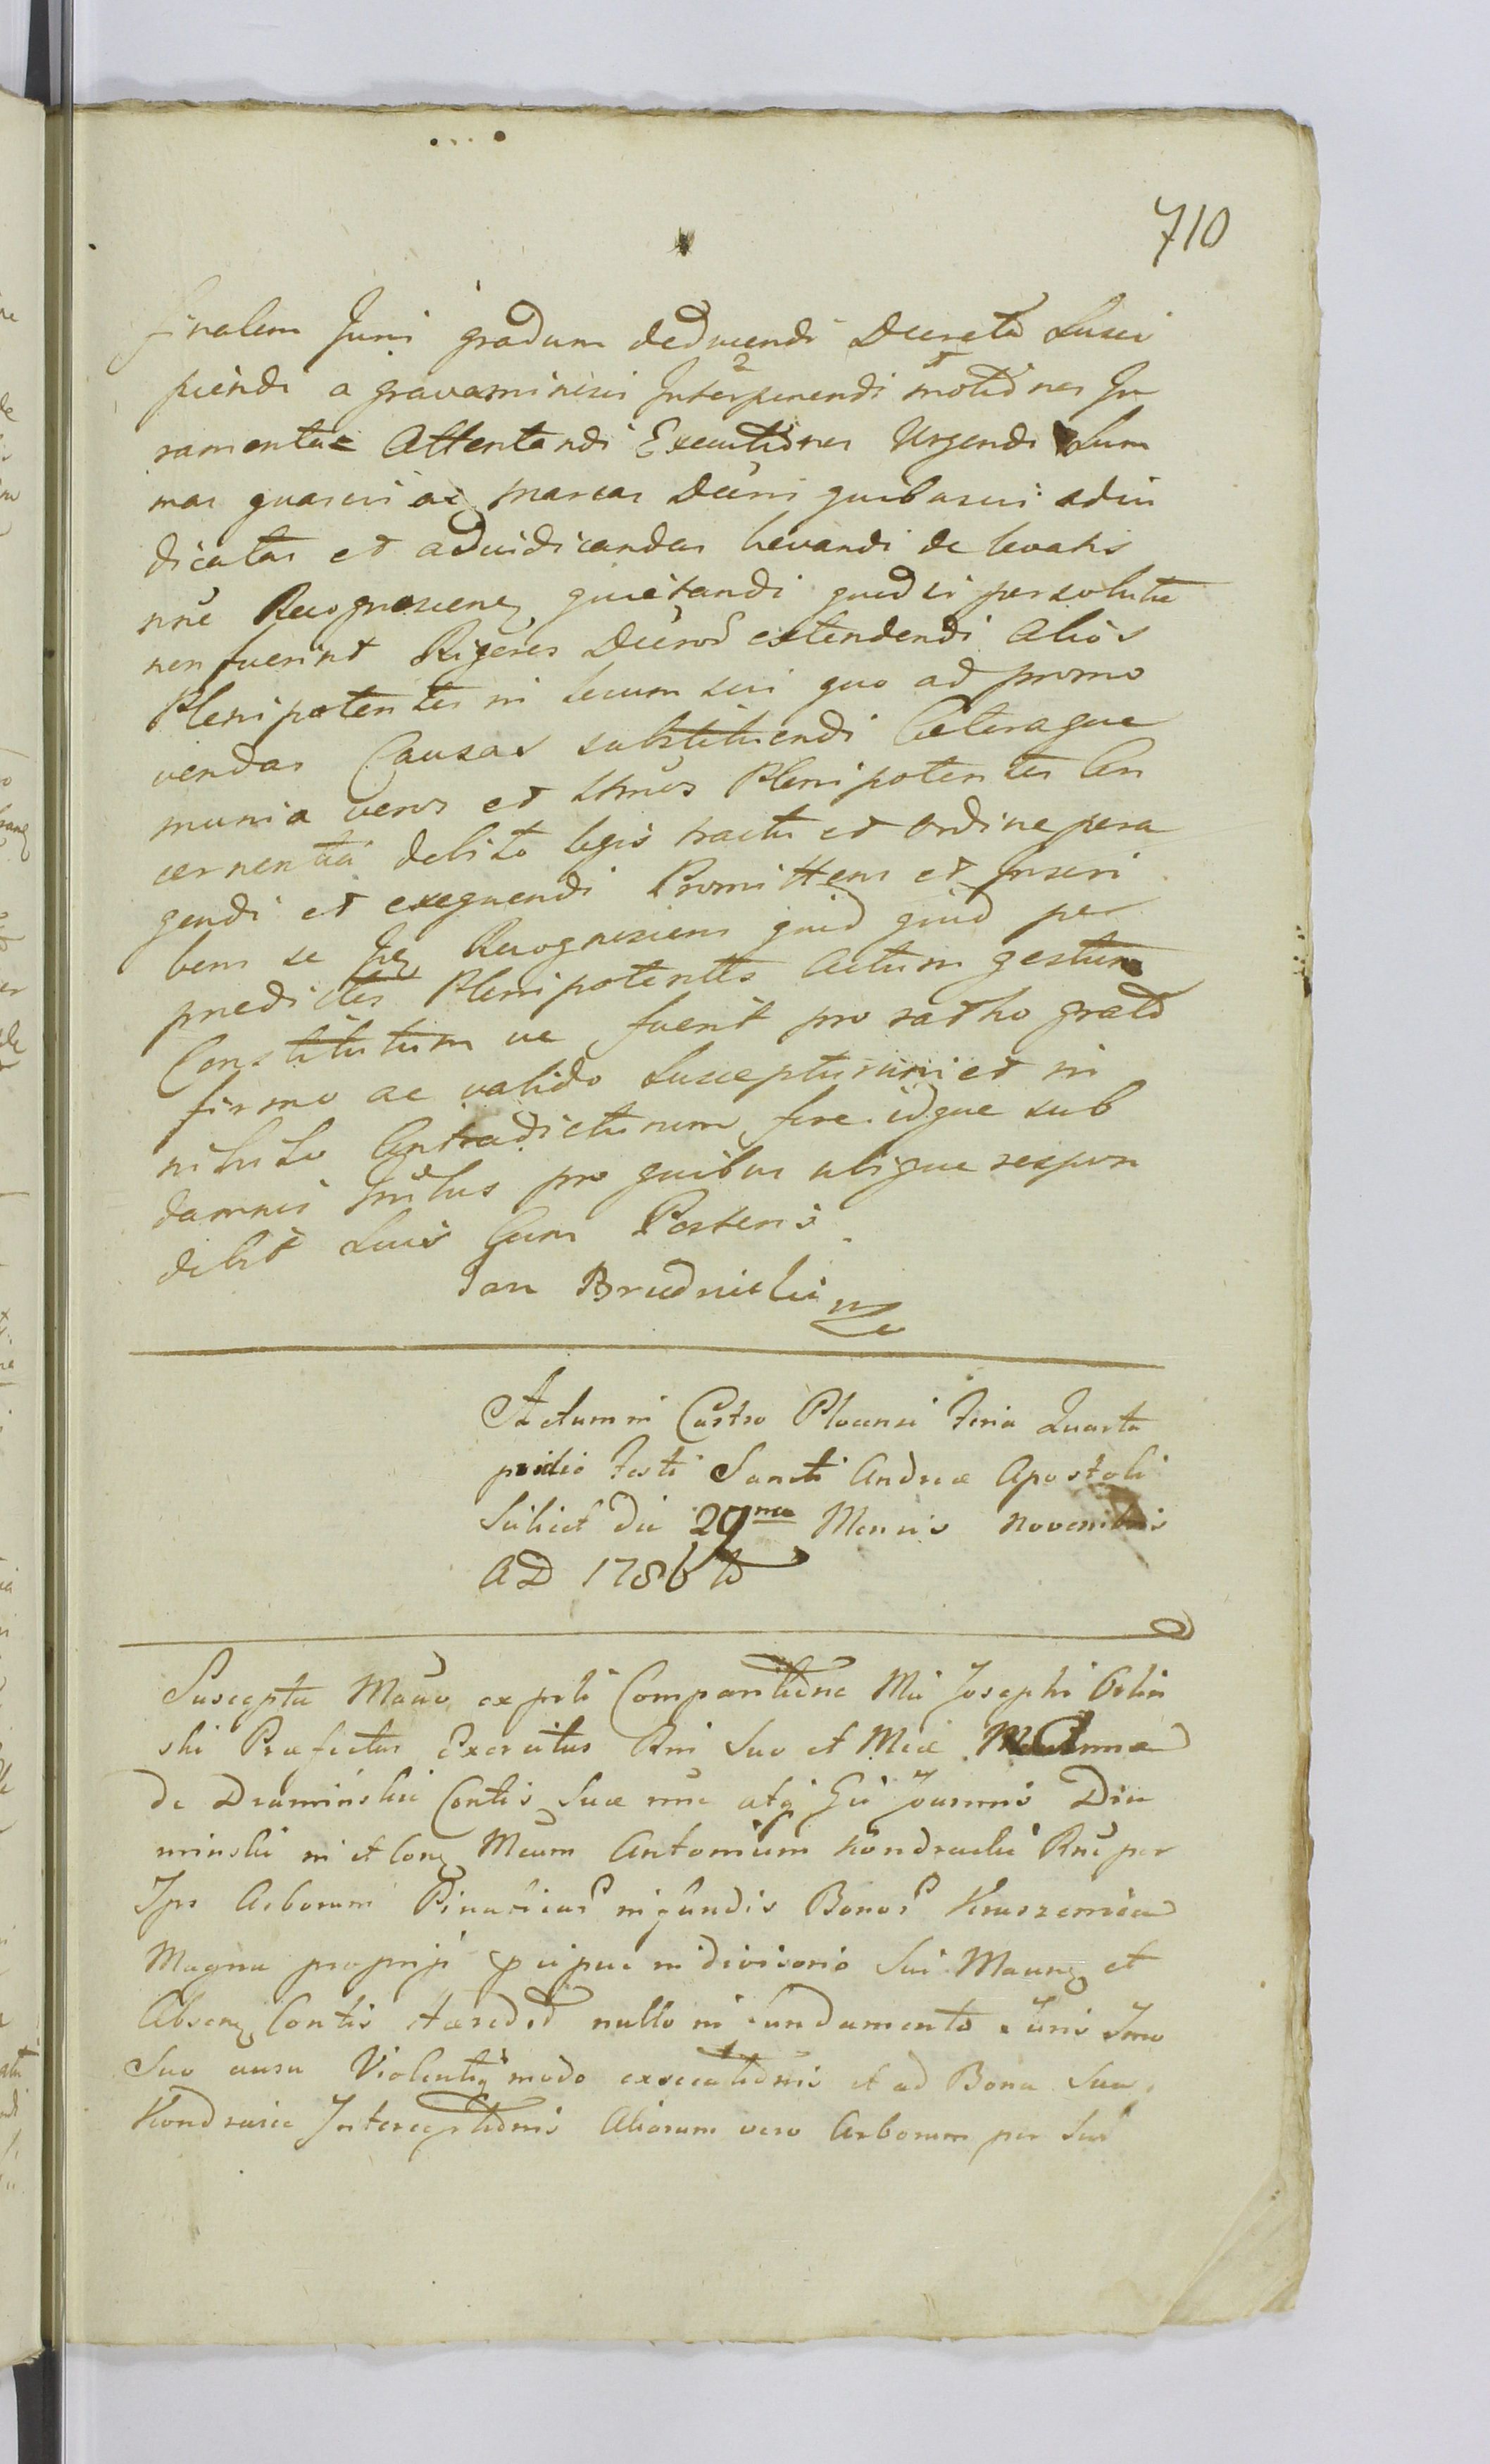 710
finalem Juri gradum deducendi Decreta Susci
piendi a gravaminibus Interponendi motiones Ju
ramentae Attentandi Executiones Urgendi Sum
mas quasvis ac marcas Decri quibusvis adiu
dicatas et adiudicandas levandi de levatis
nne Recognoscenq quietandi quod si persolutae
non fuerint Rigores Decror extendendi Alios
Plenipotentes in locum sui quo ad promo
vendas Causas substituendi Ceteraque
munia veros et ltmos Plenipotentes Con
cernentia debito legis tractu et ordine pera
gendi et exequendi Promittens et Inscri
bens se Jq Recognoscens quid quid per
predictos Plenipotentes Actum gestum
Constitutum ve fuerit pro ratho grato
firmo ac valido Suscepturum et in
nihilo Contradicturum fore idque sub
damnis pro quibus ubique respon
debit Suis Cum Posteris
Jan Brudnicki
Actum in Castro Plocensi Feria Quarta
pridie Festi Sancti Andreae Apostoli
Scilicet Die 29na Mensis Novembris
AD 1786to
Suscepta Mauo ex prti Comparitione Mci Josephi
ski Praefectus Exercitus Rni Suo et Mcae
de Druminskie Contis Suae nne atq Gsi Joannis Dru
minski in et conq Mcum Antonium Kondracki Rne per
Jps Arborum Pinaticar in fundis Bonor Kruszenica
Magna proprijs in divisorio Sui Maurq et
Absenq Contis Haeredit nullo in fundamento Juris Imo
Suo ausu Violentoq modo exsecationis et ad Bona Sua
Kondrajec Interceptionis Aliorum vero Arborum per Sub